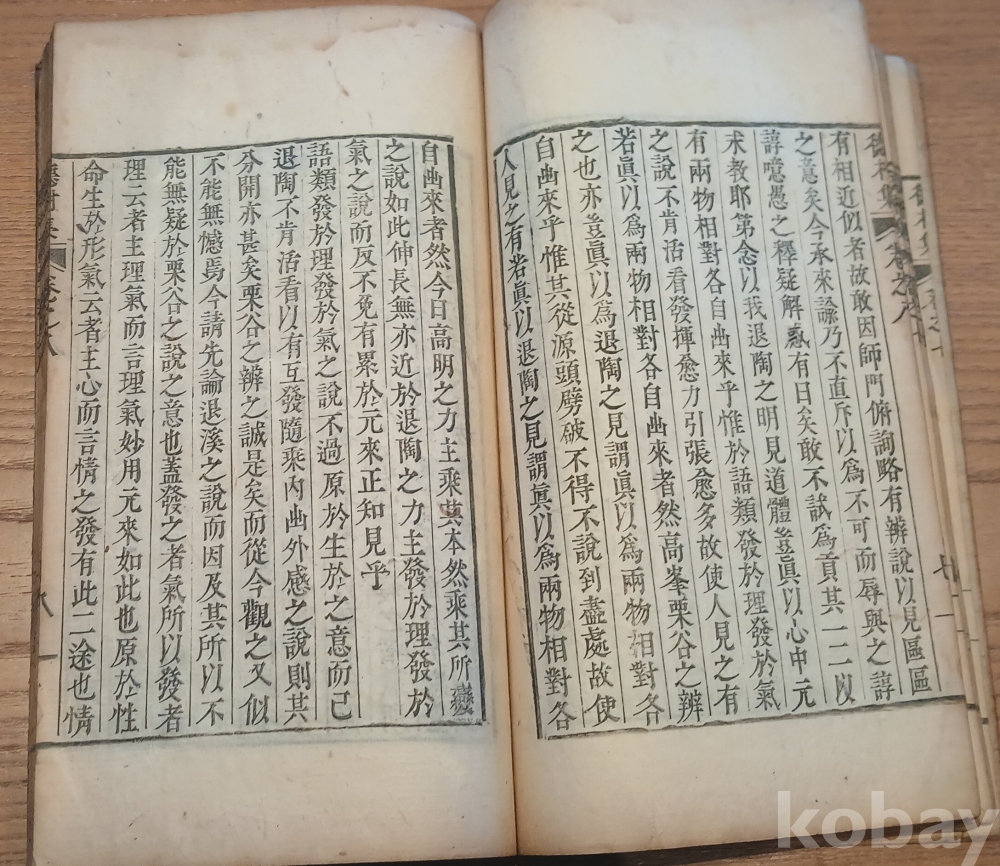 有相近似者故敢因師門俯詢略有辨說以見區區
之意矣今承來諭乃不直斥以爲不可而辱與之諄
諄噫愚之釋疑解惑有日矣敢不試爲貢其一二以
求教耶第念以我退陶之明見道體豈眞以心中元
有兩物相對各自出來乎惟於語類發於理發於氣
之說不肯活看發揮愈力引張愈多故使人見之有
若眞以爲兩物相對各自出來者然高峯栗谷之辨
之也亦豈眞以爲退陶之見謂眞以爲兩物相對各
自出來乎惟其從源頭劈破不得不說到盡處故使
人見之有若眞以退陶之見謂眞以爲兩物相對各
自出來者然今日高明之力主乘其本然乘其所變
之說如此伸長無亦近於退陶之力主發於理發於
氣之說而反不免有累於元來正知見乎
語類發於理發於氣之說不過原於生於之意而已
退陶不肯活看以有互發隨乘內出外感之說則其
分開亦甚矣栗谷之辨之誠是矣而從今觀之又似
不能無憾焉今請先論退溪之說而因及其所以不
能無疑於栗谷之說之意也蓋發之者氣所以發者
理云者主理氣而言理氣妙用元來如此也原於性
命生於形氣云者主心而言情之發有此二途也情
kobay